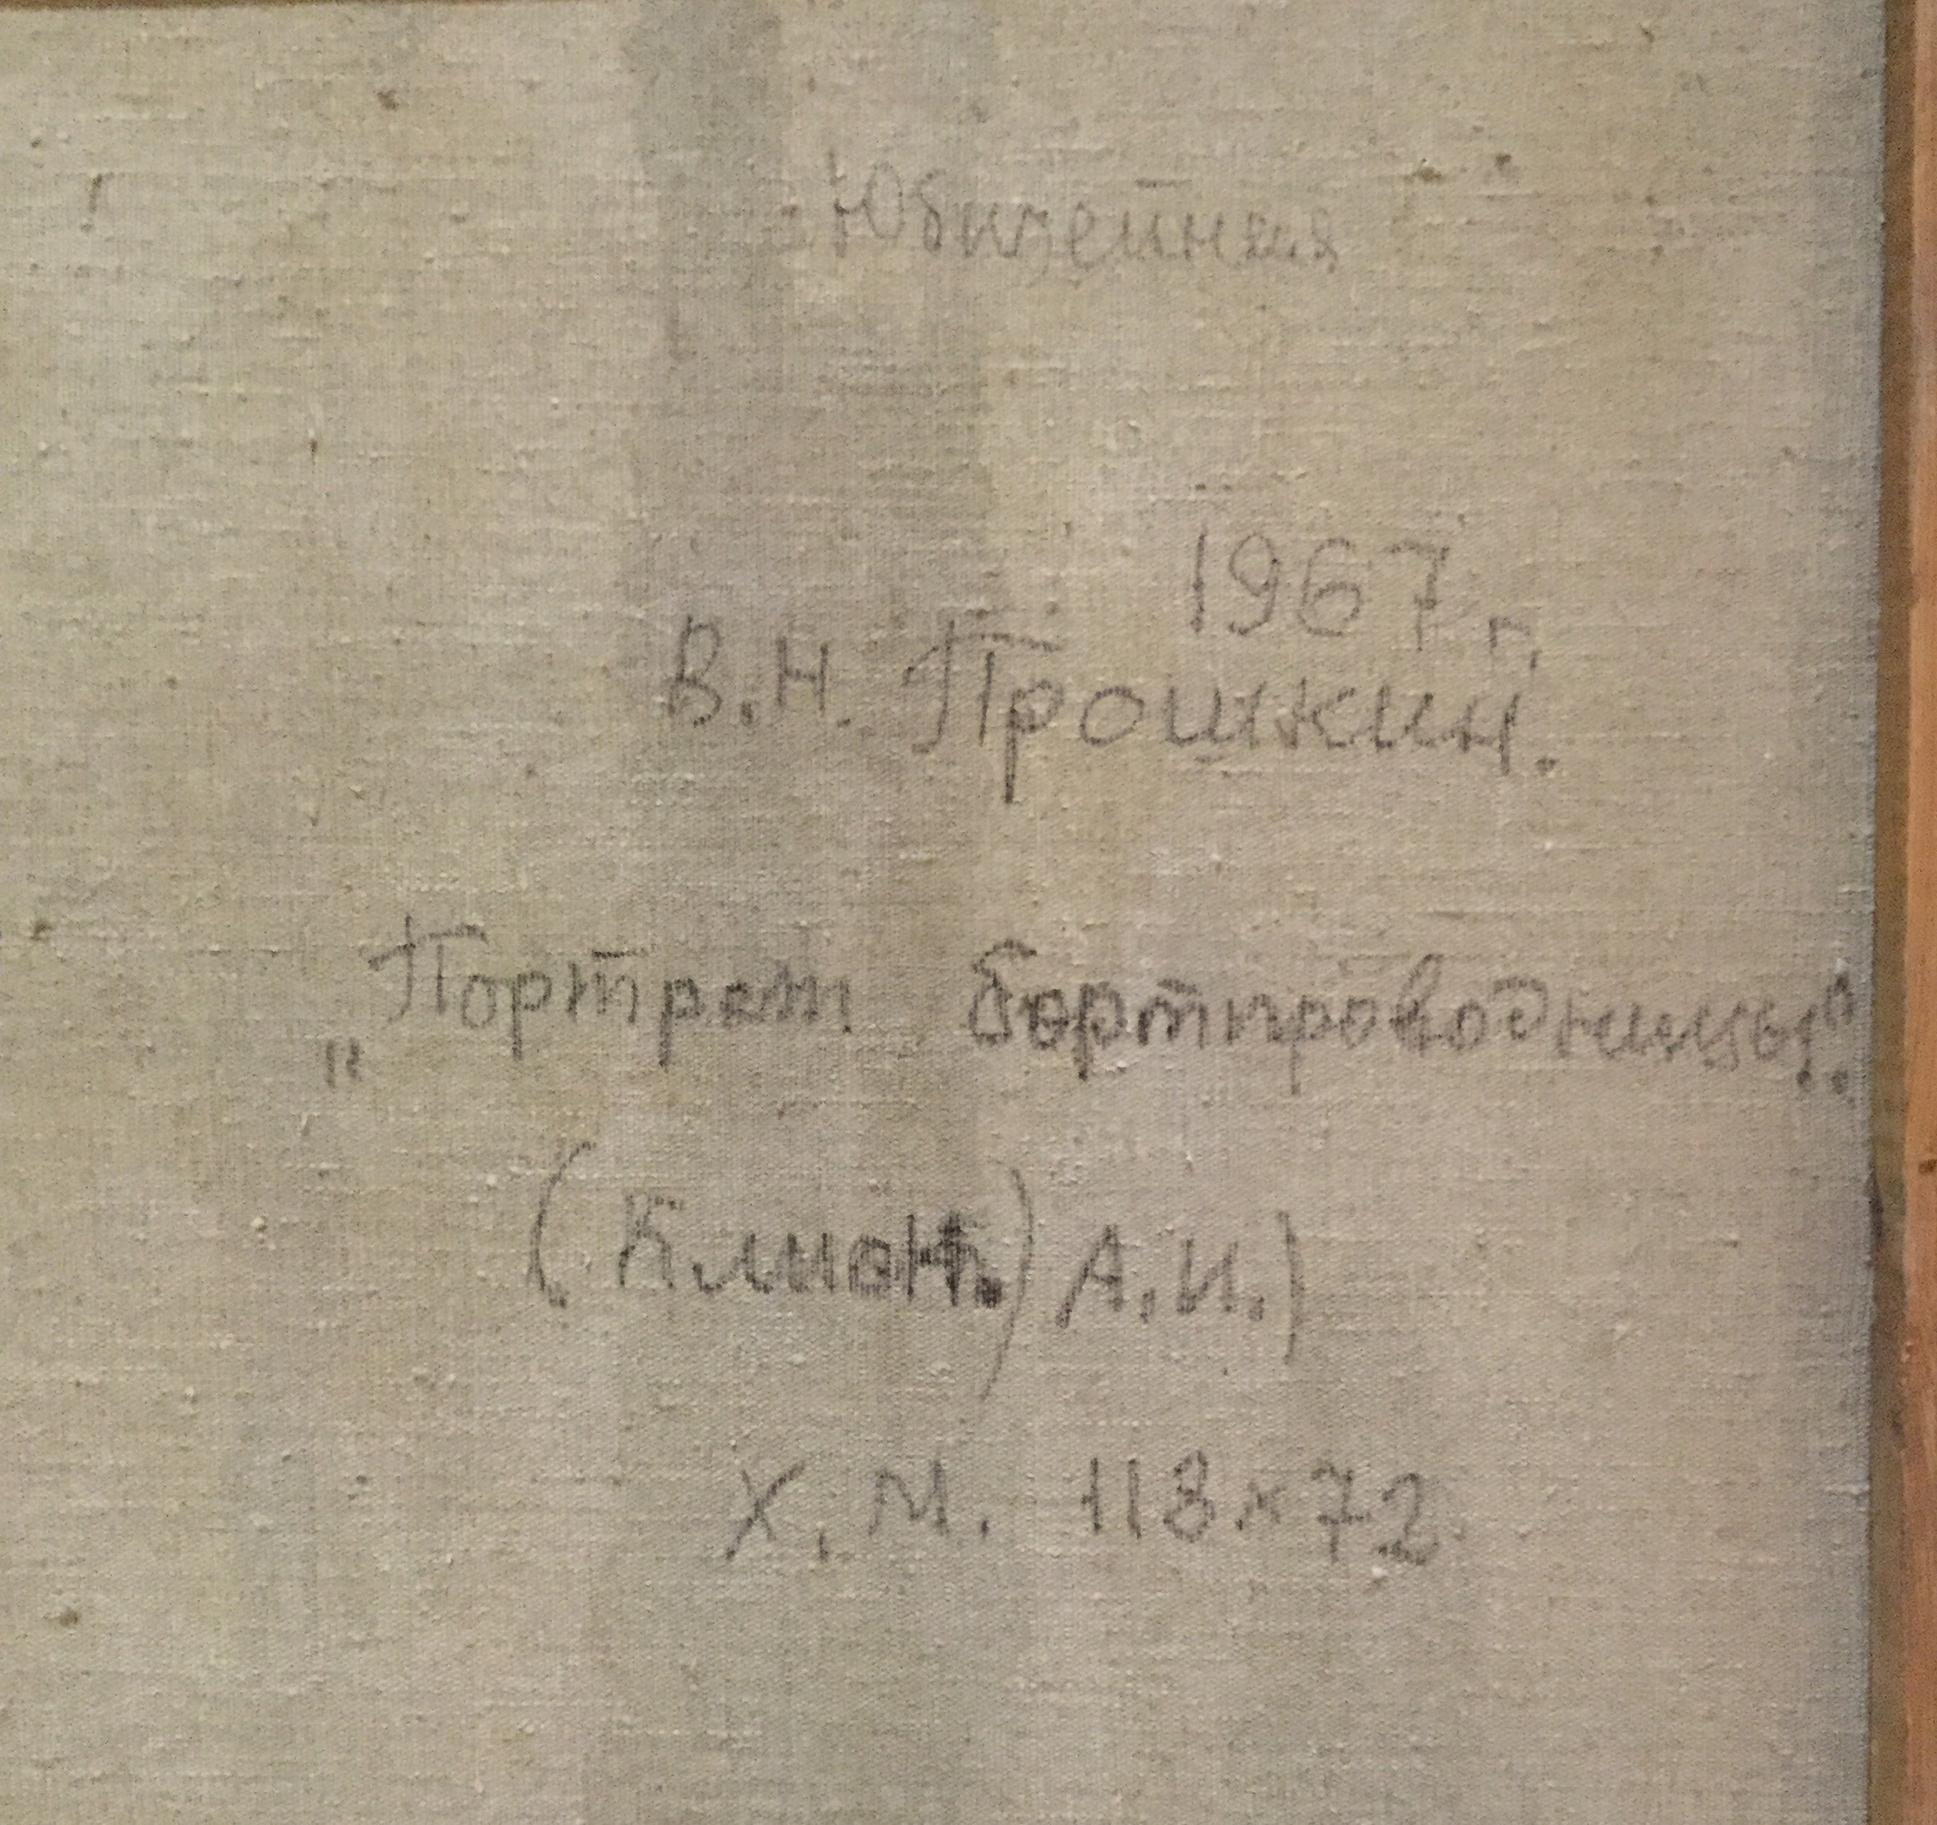 Юбилейная
1967 г.
В.Н. Прошкин.
„Портрет бортпроводницы"
А.И.)
Х.М. 118×72